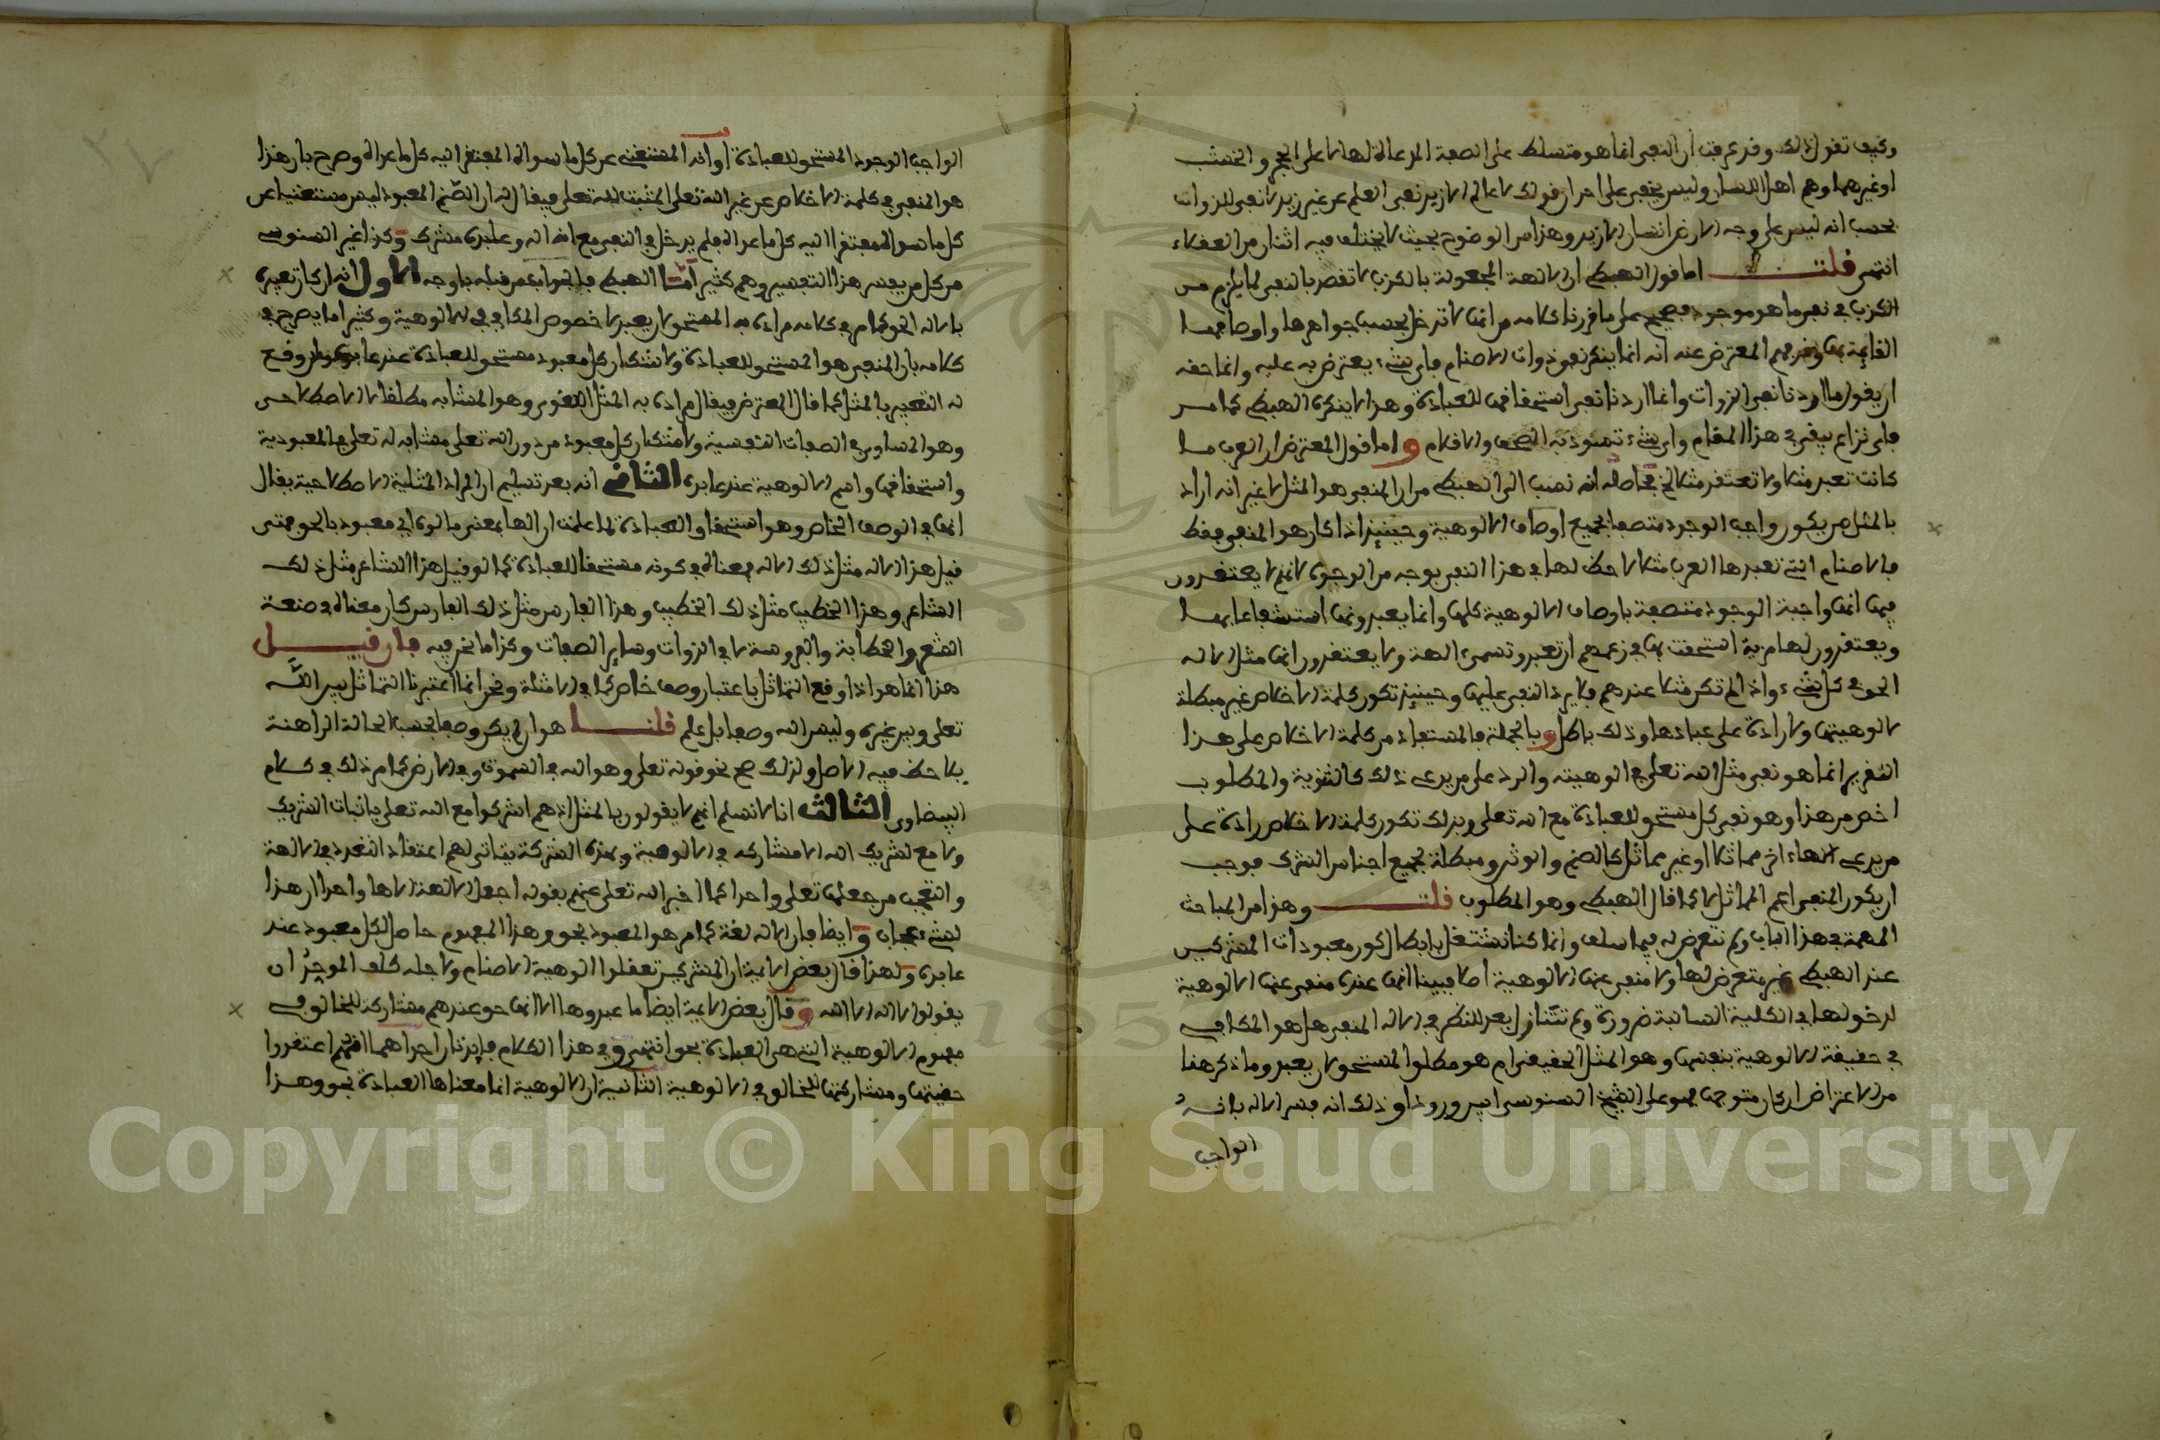 وكيف تقول ذلك وقد عرفت ان النفي انما هو متسلط على الصفة المدعاة لها لا على الحجر والخشب
او غيرهما وهم اهل اللسان وليس يخفى على احد ان قولك لا عالم الا زيد نفي العلم عن غير زيد لا نفي للذوات
بحسب انه ليس على وجه الارض انسان الا زيد وهذا من الوضوح بحيث لا يختلف فيه اثنان من العقلاء
انتهى قلت اما قول الهبطي ان الالهة المجعولة بالكذب لا تقصد بالنفي لما يلزم من
الكذب في نفي ما هو موجود فصحيح على ما قررنا كلامه من انها لا تدخل بحسب جواهرها واوصافها
القايمة بها وفهم المعترض عنه انه انما ينكر نفي ذوات الاصنام فاي شيء يعترض به عليه وانما حقه
ان يقول ما اردنا نفي الذوات وانما اردنا نفي استحقاقها للعبادة وهذا لا ينكره الهبطي كما مر
فاي نزاع يبقى في هذا المقام واي شيء تسود به الصحف والاقلام واما قول المعترض ان العرب ما
كانت تعبد مثلا ولا تعتقد مثلا الخ فحاصله انه نصب الى الهبطي مرارا المنفي هو المثل لا غير انه اراد
بالمثل من يكون واجب الوجود متصفا بجميع اوصاف الالوهية وحينيذ اذا كان هو المنفي فقط
فالاصنام التي تعبدها العرب مثلا لا حظ لها في هذا النفي بوجه من الوجوه لانهم لا يعتقدون
فيها انها واجبة الوجود متصفة باوصاف الالوهية كلها وانما يعبدونها استشفاعا بها
ويعتقدون لها مزية استحقت بها في زعمهم ان تعبد وتسمى الهة ولا يعتقدون انها مثل الاله
الحق في كل شيء واذا لم تكن مثلا عندهم فلا يرد النفي عليها وحينيذ تكون كلمة الاخلاص غير مبطلة
لالوهيتها ولا رادة على عبادها وذلك باطل وبالجملة فالمستفاد من كلمة الاخلاص على هذا
التقرير انما هو نفي مثل الله تعلى في الوهيته والرد على من يدعى ذلك كالثنوية والمطلوب
اخص من هذا وهو نفي كل مستحق للعبادة مع الله تعلى وبذلك تكون كلمة الاخلاص رادة على
من يدعى الهاء اخر مماثلا او غير مماثل كالصنم والوثن ومبطلة لجميع اجناس الشرك فوجب
ان يكون المنفي اعم المماثل لا كما قال الهبطي وهو المطلوب قلت وهذا من المباحث
المهمة في هذا الباب ولم نتعرض له فيما سلف وانما كنا نشتغل بابطال كون معبودات المشركين
عند الهبطي غير متعرض لها ولا منفي عنها الالوهية اصلا فبينا انها عنده منفي عنها الالوهية
لدخولها في الكلية السالبة ضرورة ولم نتنازل بعد للنظر في الاله المنفي هل هو المكافي
في حقيقة الالوهية بنفسها وهو المثل الحقيقي ام هو مطلق المستحق لان يعبد وما ذكر هنا
من الاعتراض ان كان متوجها فهو على الشيخ السنوسي اسبق ورودا وذلك انه فسر الاله بانه
الواجب
الواجب الوجود المستحق للعبادة او انه المستغني عن كل ما سواه المفتقر اليه كل ما عداه وصرح بان هذا
هو المنفي في كلمة الاخلاص عن غير الله تعلى المثبت لله تعلى فيقال له ان الصنم المعبود ليس مستغنيا عن
كل ما سواه المفتقر اليه كل ما عداه فلم يدخل في النفي مع انه اله وعابده مشرك وكذا غير السنوسي
من كل من يفسر هذا التفسير وهم كثير اما الهبطي فالجواب عن قبله باوجه الاول انه ان كان تعبيره
بالاله الحق كما مر في كلامه مراده به المستحق لان يعبد لا خصوص المكافي في الالوهية وكثيرا ما يصرح في
كلامه بان المنفي هو المستحق للعبادة ولا شك ان كل معبود مستحق للعبادة عند عابده وان وقع
له التعبير بالمثل كما قال المعترض فيقال مراده به المثل اللغوي وهو المشابه مطلقا لا الاصطلاحي
وهو المساوي في الصفات النفسية ولا شك ان كل معبود من دون الله تعلى مشابه له تعلى في المعبودية
واستحقاقها واسم الالوهية عند عابده الثاني انه بعد تسليم ان المراد المثلية الاصطلاحية يقال
انها في الوصف الخاص وهو استحقاق العبادة لما علمت ان الها بمعنى مالوه اي معبود بالحق فمتى
قيل هذا الاله مثل ذلك الاله فمعناه في كونه مستحقا للعبادة كما لو قيل هذا الشاعر مثل ذلك
الشاعر وهذا الخطيب مثل ذلك الخطيب وهذا الفارس مثل ذلك الفارس كان معناه في صنعة
الشعر والخطابة والفروسة لا في الذوات وساير الصفات وكذا ما نحن فيه فان قيل
هذا انما هو اذا وقع التماثل باعتبار وصف خاص كما في الامثلة ونحن انما اعتبرنا التماثل بين الله
تعلى وبين غيره وليس الله وصفا بل علم قلنا هو ان لم يكن وصفا بحسب الحالة الراهنة
يلاحظ فيه الاصل ولذلك صح نحو قوله تعلى وهو الله في السموت وفي الارض كما مر ذلك في كلام
البيضاوي الثالث انا لا نسلم انهم لا يقولون بالمثل اذ هم اشركوا مع الله تعلى باثبات الشريك
ولا معنى لشريك الله الا مشاركه في الالوهية وبهذه الشركة يتاتى لهم اعتقاد التعدد في الالهة
والتعجب من جعلها تعلى واحدا كما اخبر الله تعلى عنهم بقوله اجعل الالهة الاها واحدا ان هذا
لشيء عجاب وايضا فان الاله لغة كما مر هو المعبود بحق وهذا المفهوم حاصل لكل معبود عند
عابده ولهذا قال بعض الايمة ان المشركين تعقلوا الوهية الاصنام ولاجله كلف الموحد ان
يقولوا لا اله الا الله وقال بعض الايمة ايضا ما عبدوها الا انها حق عندهم مشاركة للخالق في
مفهوم الالوهية التي هي العبادة بحق انتهى وفي هذا الكلام فايدتان احداهما انهم اعتقدوا
حقيتها ومشاركتها للخالق في الالوهية الثانية ان الالوهية انما معناها العبادة بحق وهذا
Copyright © King Saud University
195